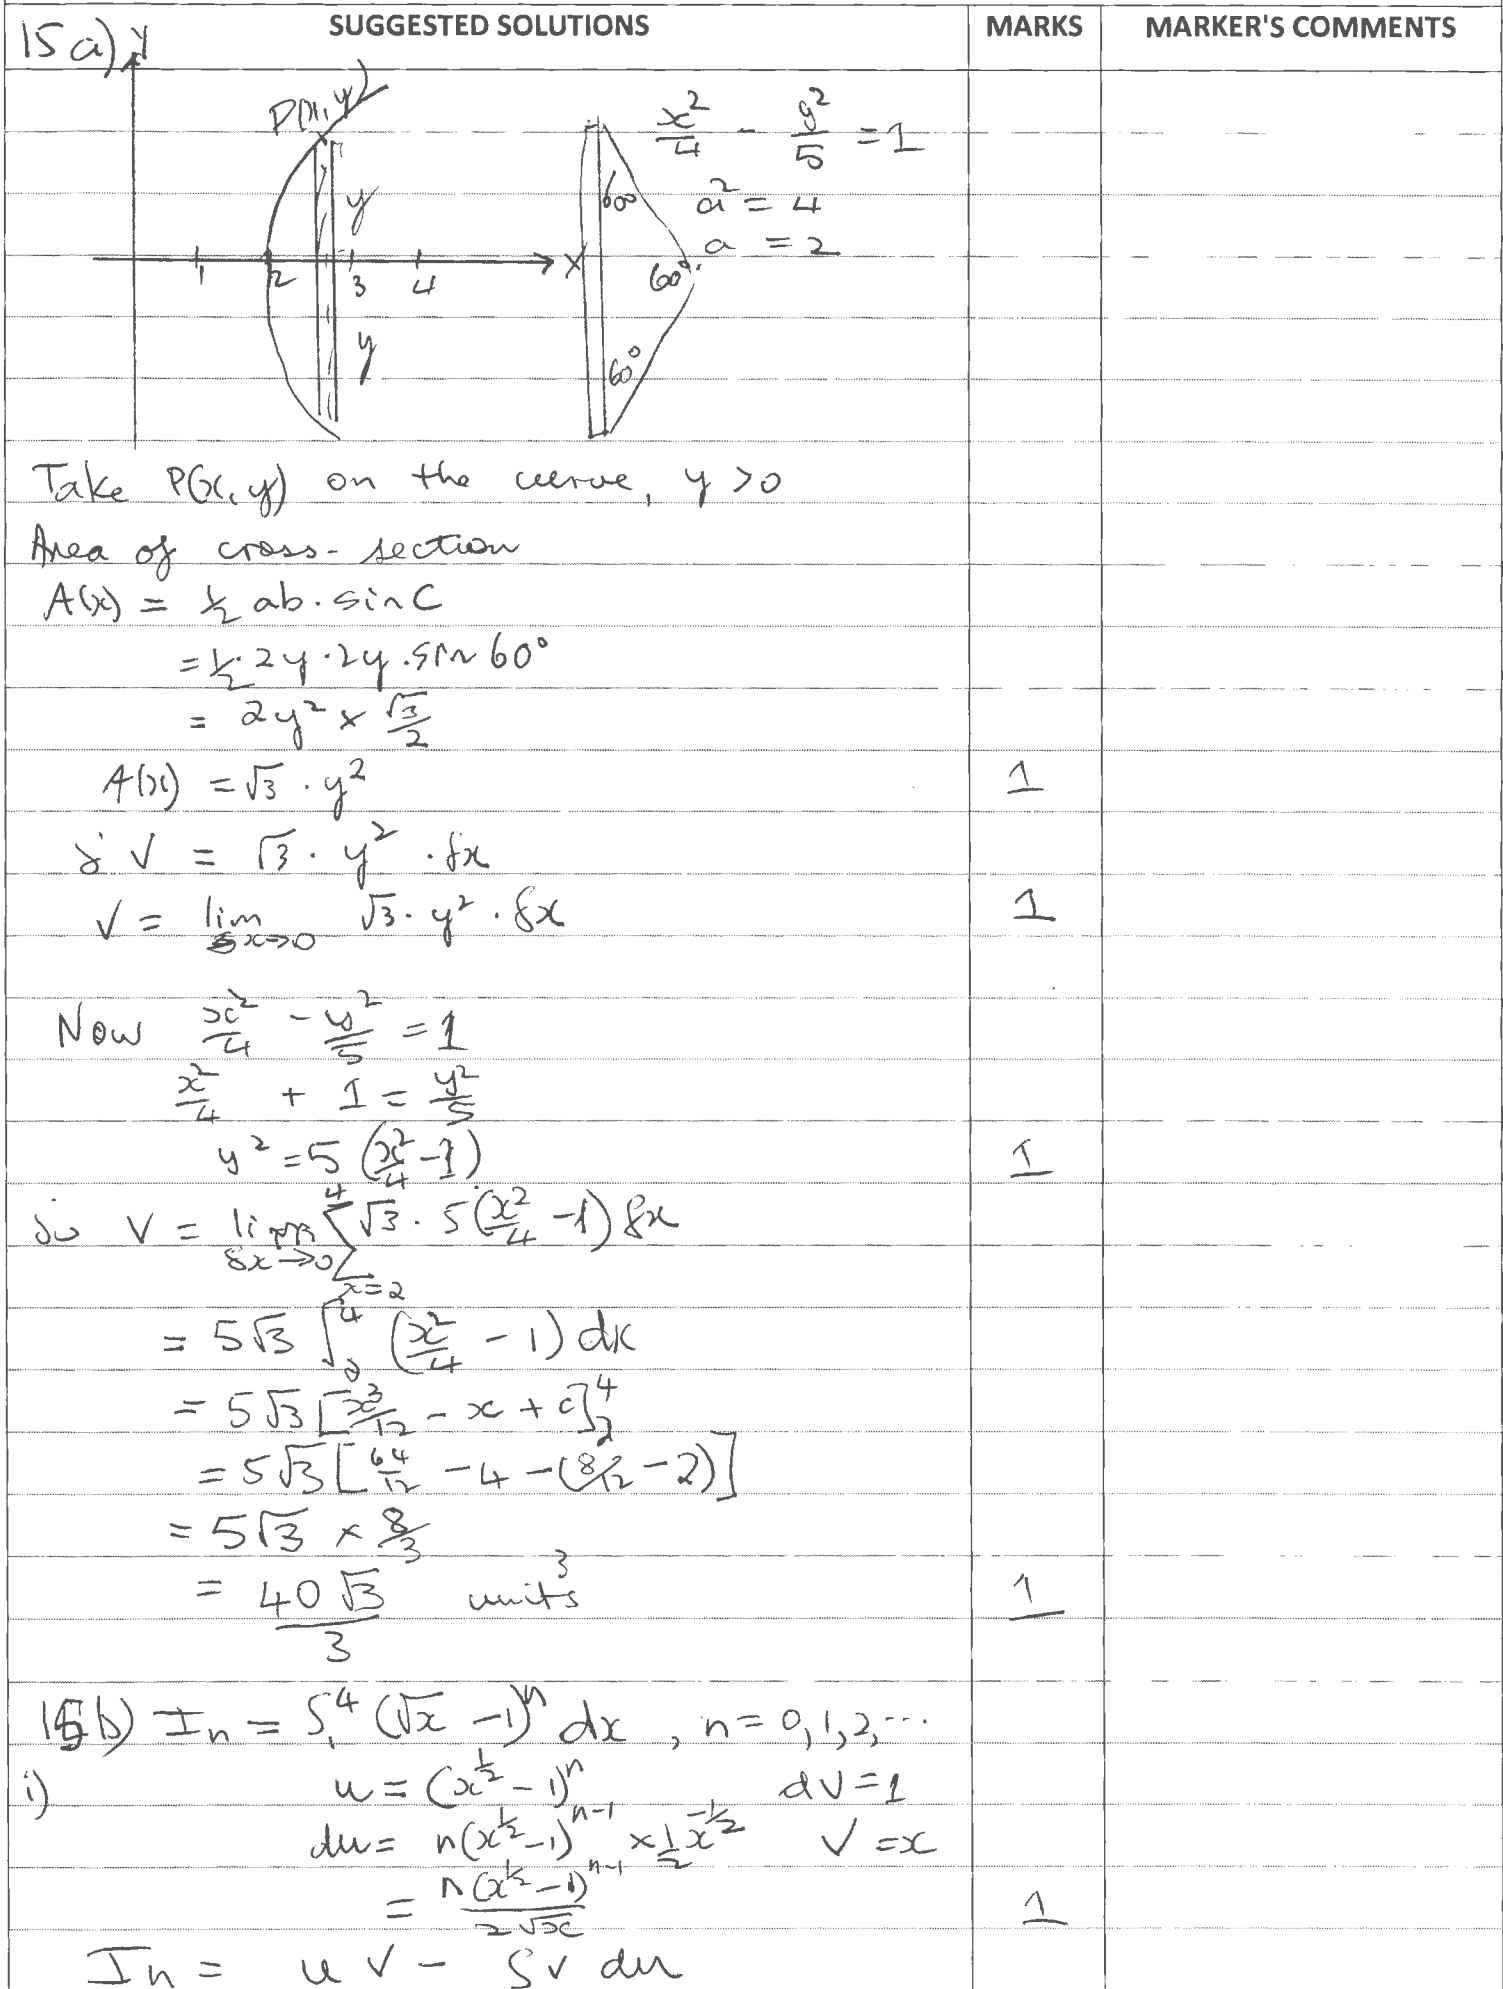 SUGGESTED SOLUTIONS MARKS MARKER'S COMMENTS
15 a) y
P(x, y) x²/4 - y²/5 = 1
y 60° a² = 4
a = 2
1 2 3 4 x 60°
y 60°
Take P(x, y) on the curve, y > 0
Area of cross-section
A(x) = ½ ab · sin C
= ½ · 2y · 2y · sin 60°
= 2y² × √3/2
A(x) = √3 · y² 1
δV = √3 · y² · δx
V = lim δx→0 √3 · y² · δx 1
Now x²/4 - y²/5 = 1
x²/4 + 1 = y²/5
y² = 5 (x²/4 - 1) 1
so V = lim δx→0 4 Σ x=2 √3 · 5(x²/4 - 1) δx
= 5√3 ∫₂⁴ (x²/4 - 1) dx
= 5√3 [x³/12 - x + c]₂⁴
= 5√3 [64/12 - 4 - (8/12 - 2)]
= 5√3 × 8/3
= 40√3/3 units³ 1
15b) Iₙ = ∫₁⁴ (√x - 1)ⁿ dx , n = 0, 1, 2, ...
i) u = (x^½ - 1)ⁿ dv = 1
du = n(x^½ - 1)ⁿ⁻¹ × ½ x^-½ v = x
= n(x^½ - 1)ⁿ⁻¹ / 2√x 1
Iₙ = u v - ∫ v du